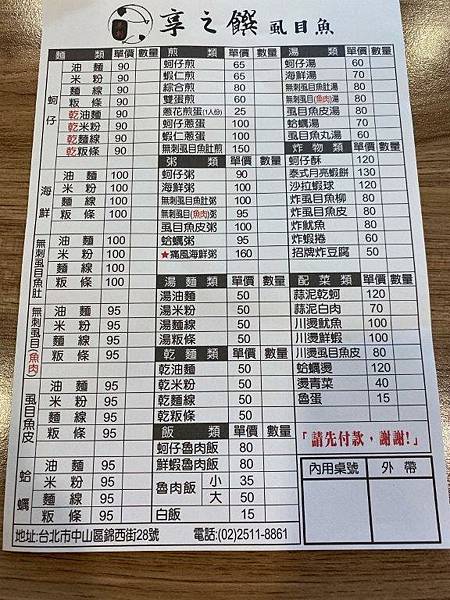 享之饌 虱目魚
麵類 單價 數量
蚵仔
油麵 90
米粉 90
麵線 90
粄條 90
乾油麵 90
乾米粉 90
乾麵線 90
乾粄條 90
海鮮
油麵 100
米粉 100
麵線 100
粄條 100
無刺虱目魚肚
油麵 100
米粉 100
麵線 100
粄條 100
無刺虱目(魚肉)
油麵 95
米粉 95
麵線 95
粄條 95
虱目魚皮
油麵 95
米粉 95
麵線 95
粄條 95
蛤蠣
油麵 95
米粉 95
麵線 95
粄條 95
煎類 單價 數量
蚵仔煎 65
蝦仁煎 65
綜合煎 80
雙蛋煎 60
蔥花煎蛋(1人份) 25
蚵仔蔥蛋 100
蝦仁蔥蛋 100
無刺虱目魚肚煎 150
粥類 單價 數量
蚵仔粥 90
海鮮粥 100
無刺虱目魚肚粥 100
無刺虱目(魚肉)粥 95
虱目魚皮粥 95
蛤蠣粥 95
★痛風海鮮粥 160
湯麵類 單價 數量
湯油麵 50
湯米粉 50
湯麵線 50
湯粄條 50
乾麵類 單價 數量
乾油麵 50
乾米粉 50
乾麵線 50
乾粄條 50
飯類 單價 數量
蚵仔魯肉飯 80
鮮蝦魯肉飯 80
魯肉飯 小 35
大 50
白飯 15
湯類 單價 數量
蚵仔湯 60
海鮮湯 70
無刺虱目魚肚湯 80
無刺虱目(魚肉)湯 80
虱目魚皮湯 80
蛤蠣湯 70
虱目魚丸湯 60
炸物類 單價 數量
蚵仔酥 120
泰式月亮蝦餅 130
沙拉蝦球 120
炸虱目魚柳 80
炸虱目魚皮 80
炸魷魚 80
炸蝦捲 60
招牌炸豆腐 50
配菜類 單價 數量
蒜泥乾蚵 120
蒜泥白肉 70
川燙魷魚 100
川燙鮮蝦 100
川燙虱目魚皮 80
蛤蠣燙 120
燙青菜 40
魯蛋 15
「請先付款，謝謝!」
內用桌號 外帶
地址:台北市中山區錦西街28號 電話:(02)2511-8861